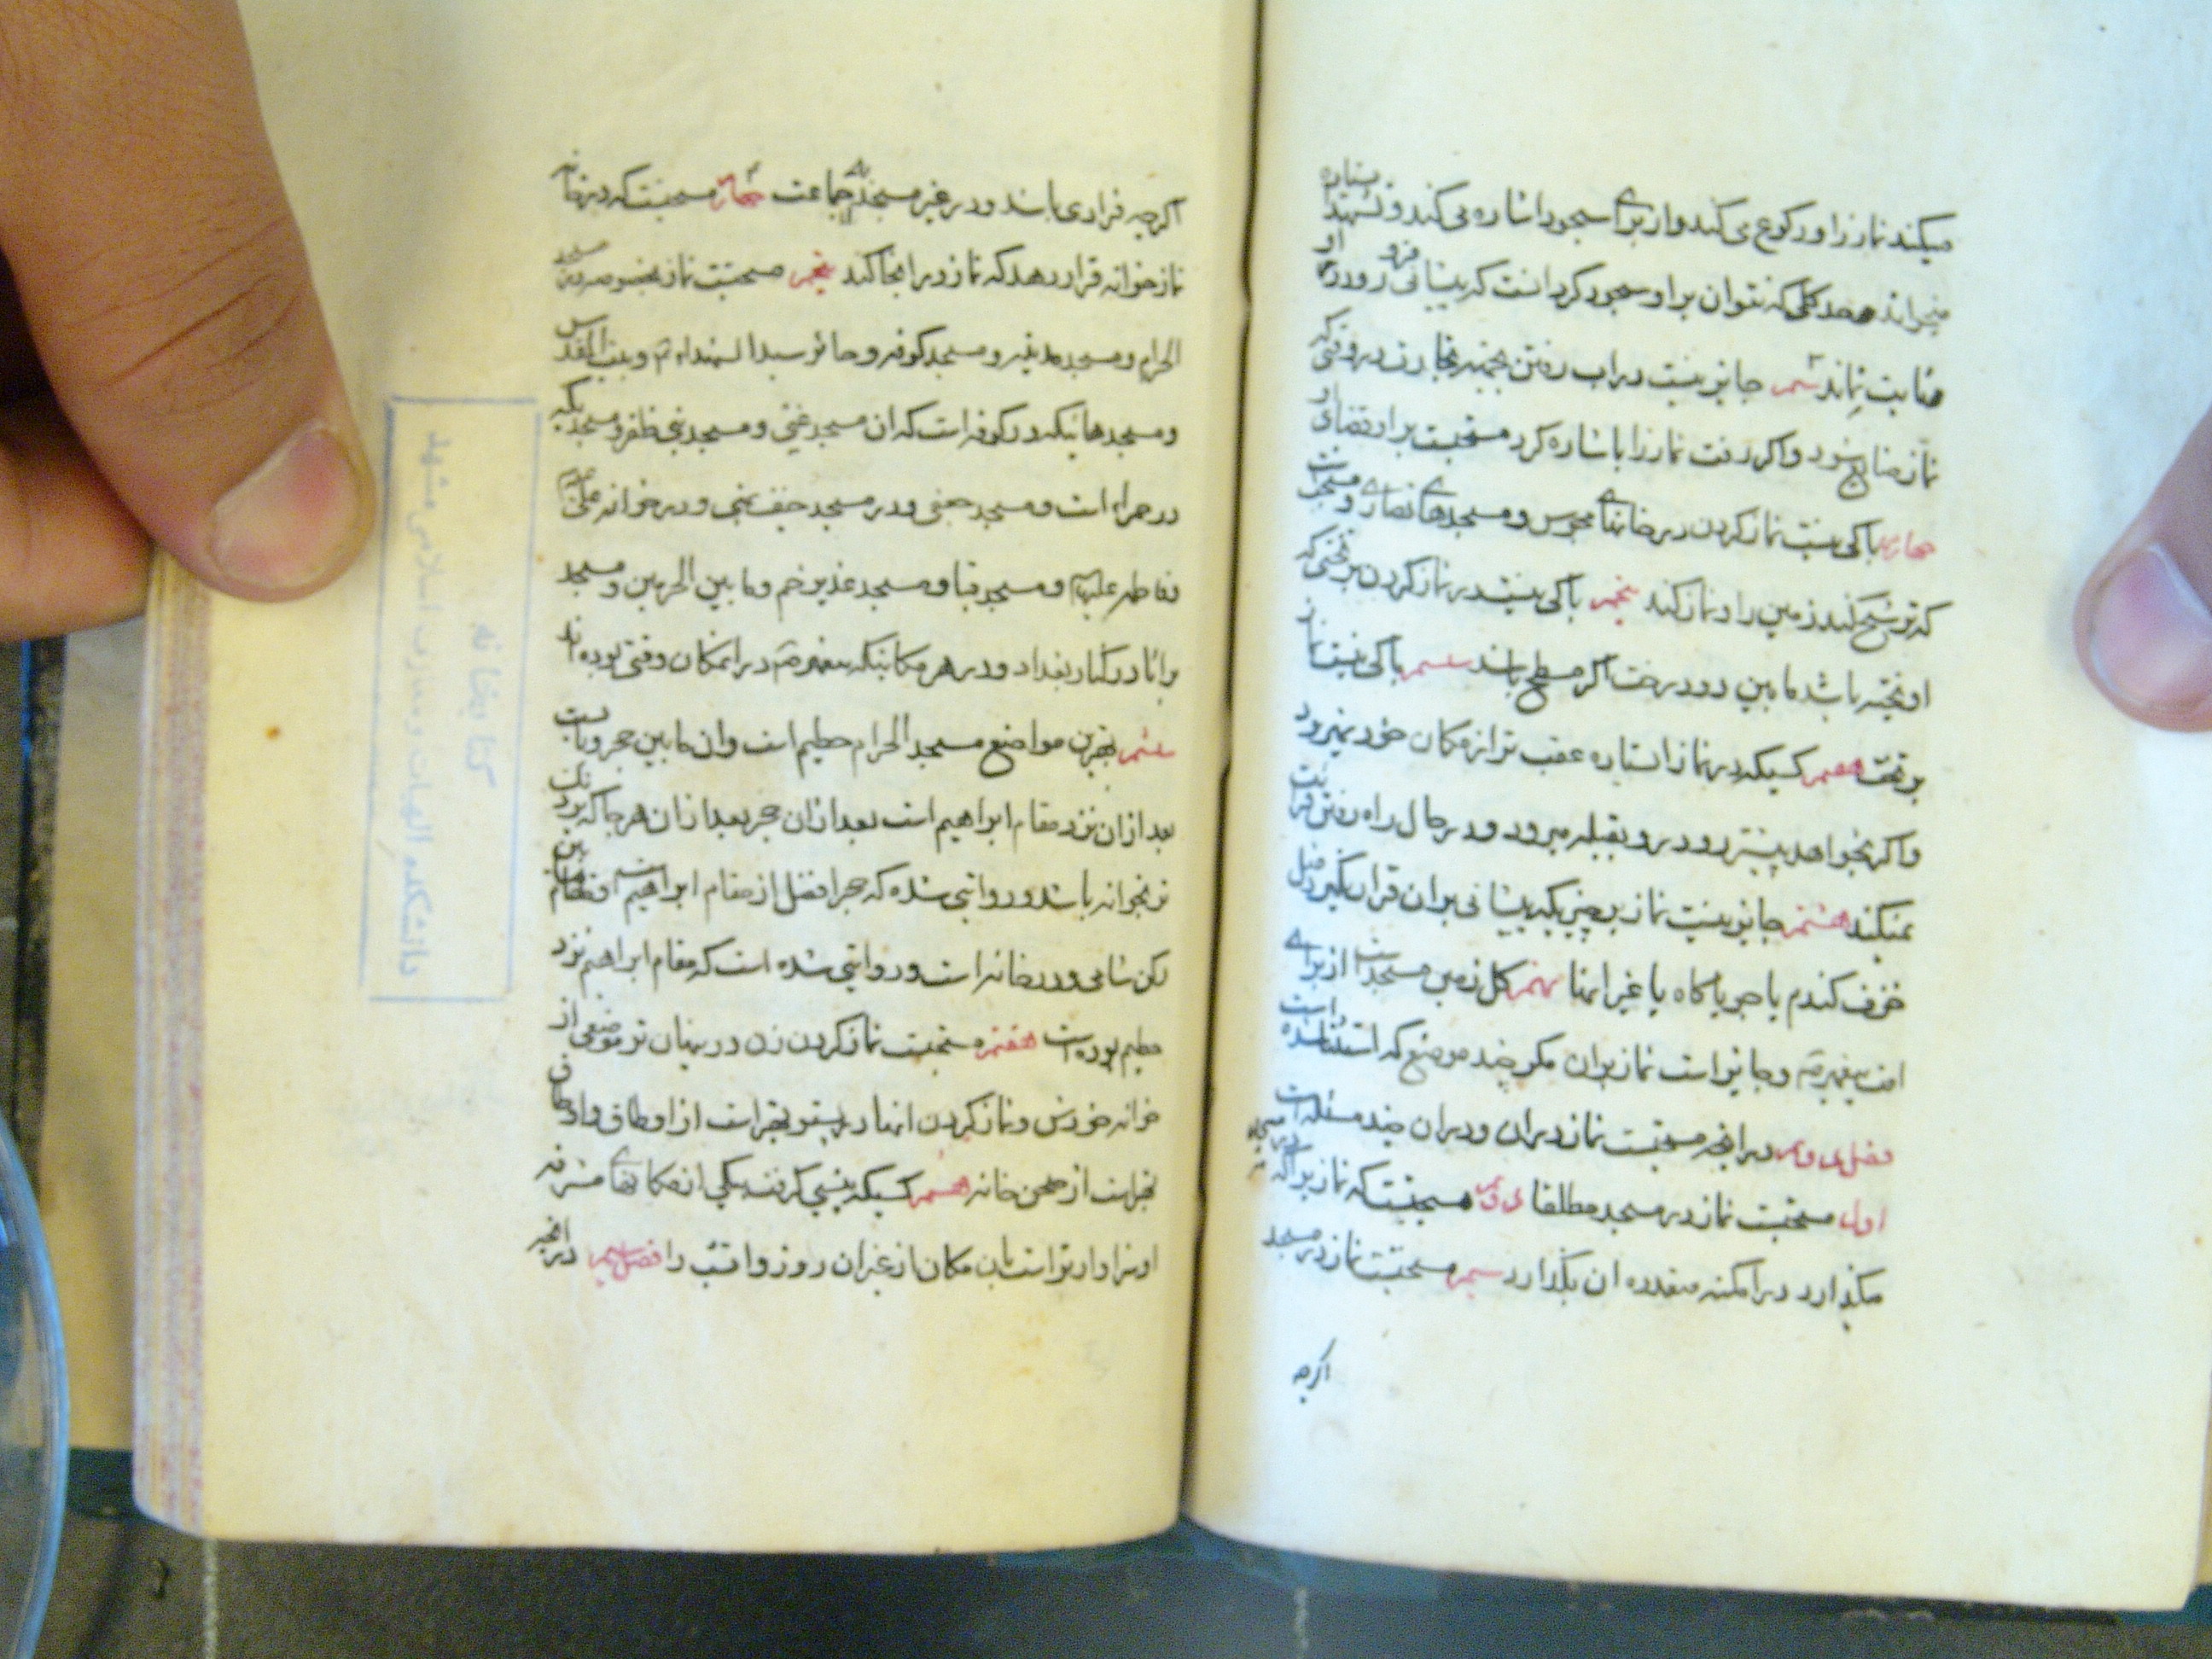 میکند نماز را و رکوع می کند و از برای سجود اشاره می کند و تشهد ایستاده
میخواند و حد گلی که نتوان بر او سجود کرد انست که پیشانی فرو رود در او
و ثابت نماند سیم جایز نیست در اب رفتن بجهة تجارت در وقتی که
نماز ضایع شود و اگر رفت نماز را باشاره کرد مستحبست بر او قضای او
چهارم باکی نیست نماز کردن در خانهای مجوس و مسجدهای نصاری و مستحبست
که ترشح کند زمین را و نماز کند پنجم باکی نیست در نماز کردن بر تختی که
اویخته باشد مابین دو درخت اگر مسطح باشد ششم باکی نیست نماز
بر تخت هفتم کسیکه در نماز استاده عقب تر از مکان خود نمیرود
و اگر بخواهد پیشتر رود رو بقبله میرود و در حال راه رفتن قرائت
نمیکند هشتم جایز نیست نماز بچیزیکه پیشانی بر ان قرار نگیرد مثل
خرف گندم یا جو یا کاه یا غیر اینها نهم کل زمین مسجد است از برای
امت پیغمبر ص و جایز است نماز بر ان مگر چند موضع که استثنا شده است
فصل دویم در انچه مستحبست نماز در ان و در ان چند مسئله است
اول مستحبست نماز در مسجد مطلقا دویم مستحبست که نماز بر اگر
میگذارد در امکنه متعدده ان بگذارد سیم مستحبست نماز در مسجد
اگرچه
اگرچه فرادی باشد و در غیر مسجد بجماعت چهارم مستحبست که در خانه
نماز خوانه قرار دهد که نماز در انجا کند پنجم مستحبست نماز بخصوصه در مسجد
الحرام و مسجد مدینه و مسجد کوفه و حائر سید الشهداء ع و بیت المقدس
و مسجدهائیکه در کوفه است که ان مسجد غنی و مسجد بنی ظفر و مسجدیکه
در حمراء است و مسجد جعفی و در مسجد خیف بمنی و در خوانه علی
و فاطمه علیهما و مسجد قبا و مسجد غدیر خم و مابین الحرمین و مسجد
براثا در کنار بغداد و در هر مکانیکه پیغمبر ص در انمکان وقتی بوده اند
ششم بهترین مواضع مسجد الحرام حطیم است و ان مابین حجر و باب است
بعد از ان نزد مقام ابراهیم است بعد از ان حجر بعد از ان هر جا که نزدیک
تر بخوانه باشد و روایتی شده که حجر افضل از مقام ابراهیم است و مقام مابین
رکن شامی و در خانه است و روایتی شده است که مقام ابراهیم نزد
حطیم بوده است هفتم مستحبست نماز کردن زن در پنهان تر موضعی از
خوانه خودش و نماز کردن انها در پستو بهتر است از اوطاق و اوطاق
بهتر است از صحن خانه هشتم کسیکه پیشی گرفت بیکی از مکانهای مشرفه
او سزاوارتر است بان مکان از غیر ان روز و انشب را فصل سیم در انچه
کتابخانه
دانشکده الهیات و معارف اسلامی مشهد